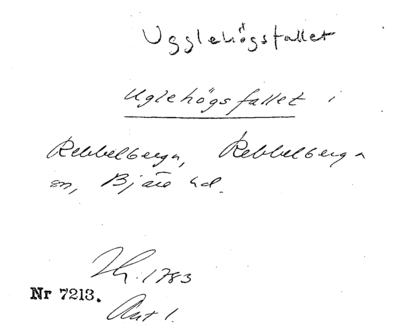 Ugglehögsfallet
Uglehögsfallet i
Rebbelberga, Rebbelberga
sn, Bjäre hd.
1783
Nr 7213.
Akt 1.